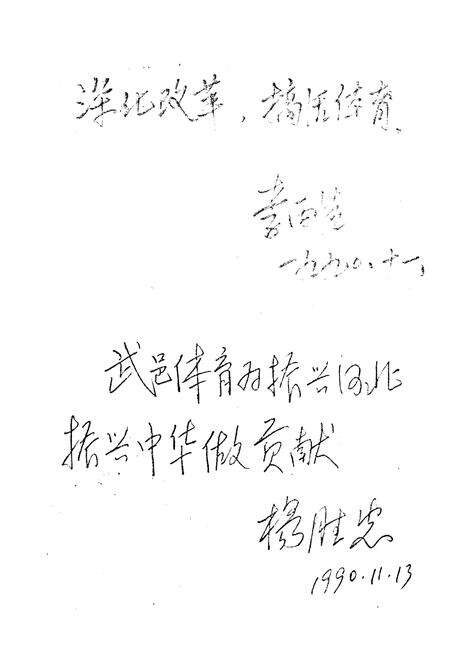 深化改革，搞活体育
一九九〇、十一、
武邑体育为振兴河北
振兴中华做贡献
杨胜忠
1990.11.13